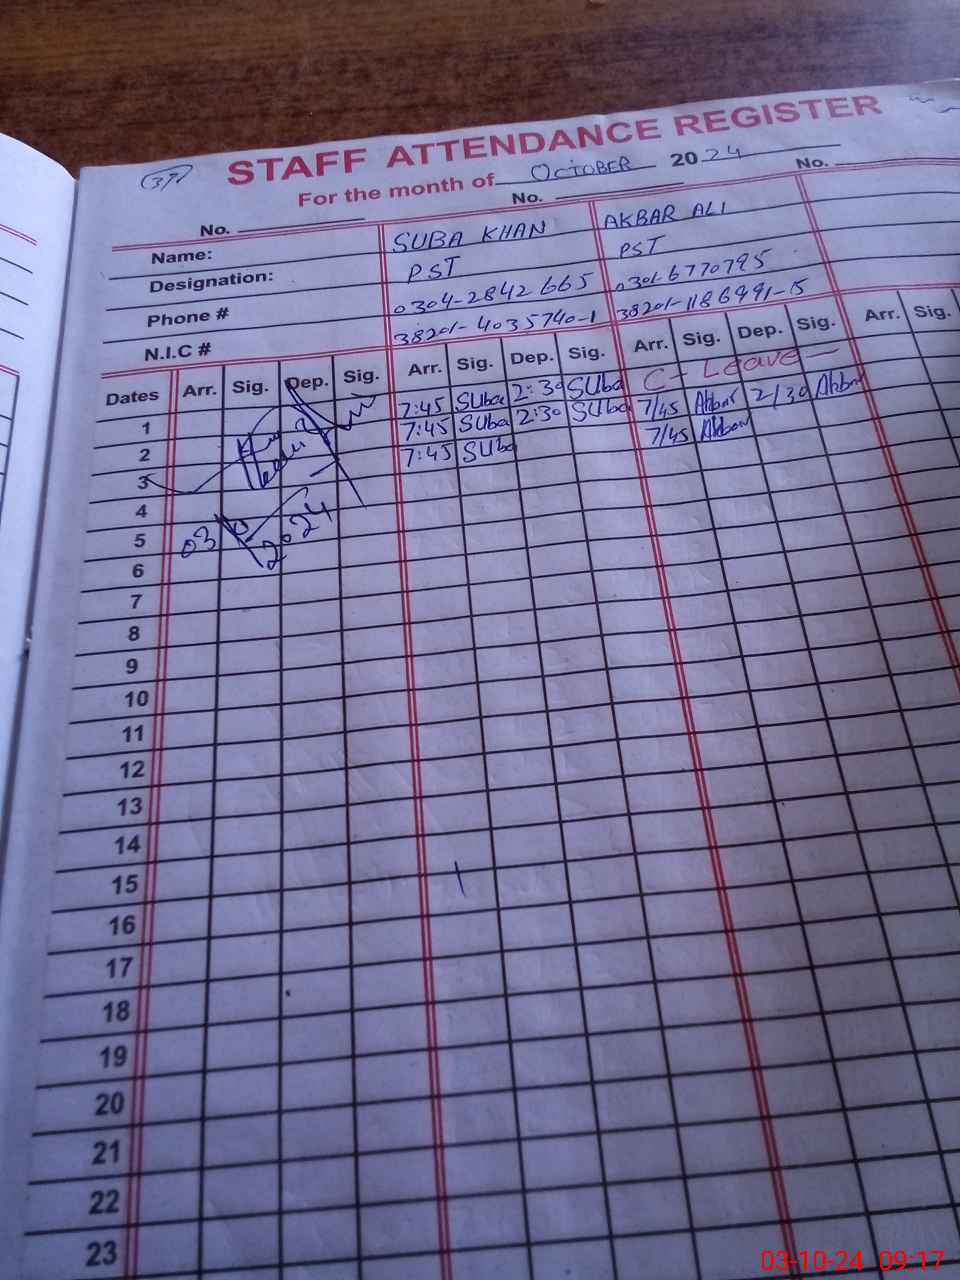 37
STAFF ATTENDANCE REGISTER
For the month of OCTOBER 2024
No. No. No.
Name: SUBA KHAN AKBAR ALI
Designation: PST PST
Phone # 0304-2842665 0301-6770795
N.I.C # 38201-4035740-1 38201-1186991-15
Dates Arr. Sig. Dep. Sig. Arr. Sig. Dep. Sig. Arr. Sig. Dep. Sig. Arr. Sig.
1 7:45 Suba 2:30 Suba C-Leave
2 7:45 Suba 2:30 Suba 7/45 Akbar 2/30 Akbar
3 7:45 Suba 7/45 Akbar
4
5 03 2024
6
7
8
9
10
11
12
13
14
15
16
17
18
19
20
21
22
23
03-10-24 09:17